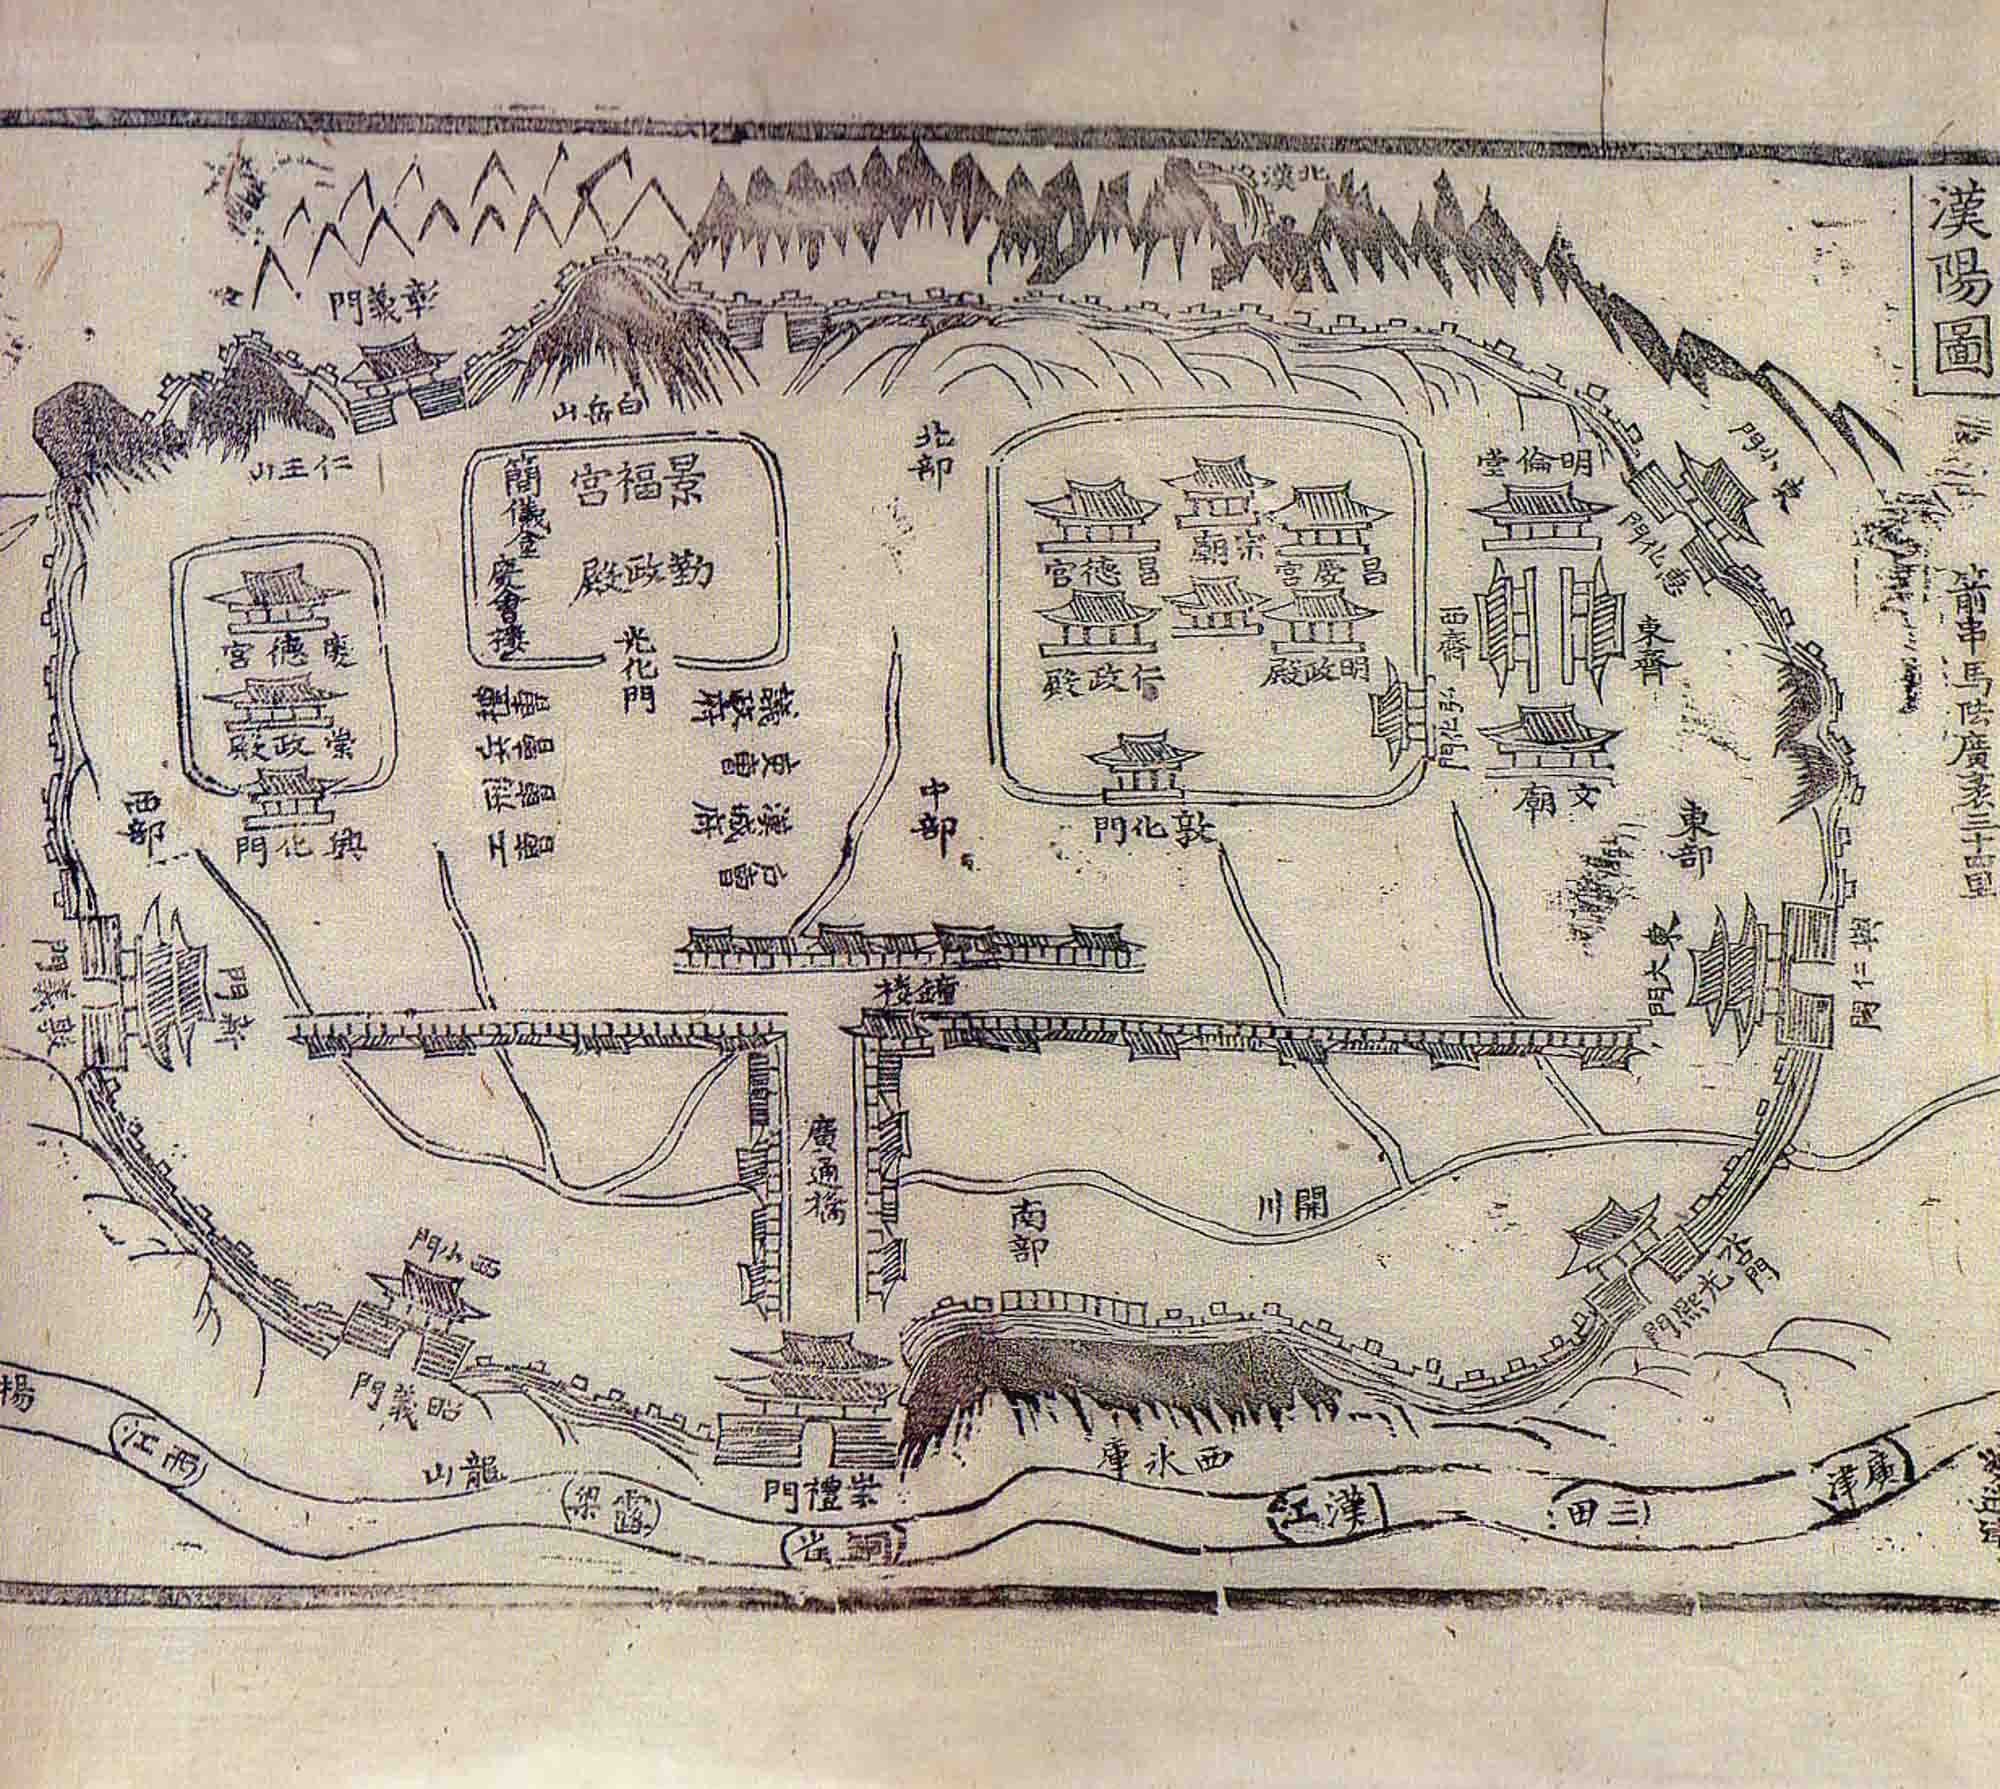 漢陽圖
箭串馬場廣袤三十四里
北漢
彰義門
白岳山
仁王山
景福宮
勤政殿
簡儀臺
慶會樓
光化門
議政府
吏曹
漢城府
戶曹
禮曹
兵曹
刑曹
工曹
慶德宮
崇政殿
興化門
西部
北部
中部
東部
南部
宗廟
昌德宮
昌慶宮
仁政殿
明政殿
弘化門
敦化門
明倫堂
東齋
西齋
文廟
東小門
惠化門
東大門
興仁門
新門
敦義門
鐘樓
廣通橋
開川
西小門
昭義門
崇禮門
水口門
光熙門
西氷庫
龍山
楊
西江
露梁
銅雀
漢江
三田
廣津